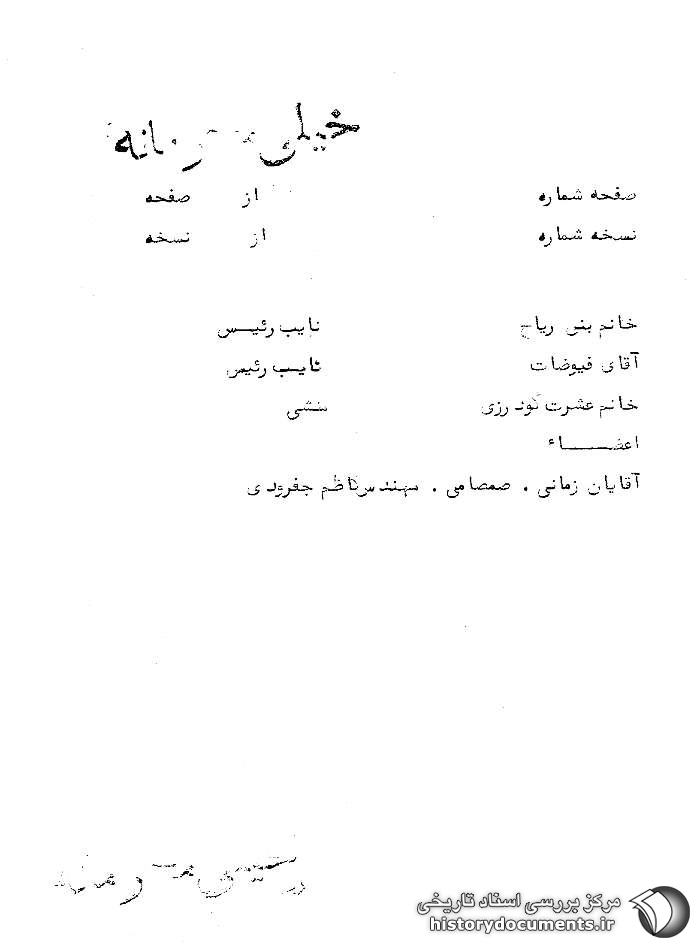 خیلی محرمانه
صفحه شماره از صفحه
نسخه شماره از نسخه
خانم بنی ریاح نایب رئیس
آقای فیوضات نایب رئیس
خانم عشرت گودرزی منشی
اعضاء
آقایان زمانی . صمصامی . مهندس کاظم جفرودی
خیلی محرمانه
مرکز بررسی اسناد تاریخی
historydocuments.ir